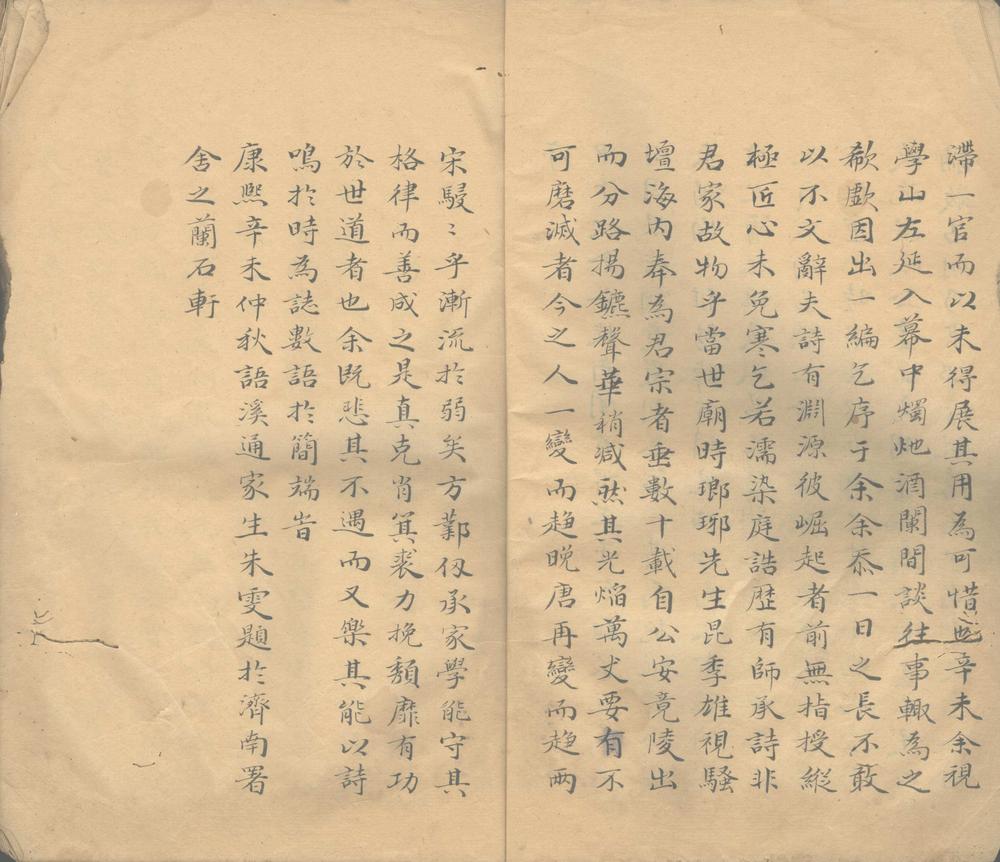 滯一官而以未得展其用為可惜也辛未余視
學山左延入幕中燭灺酒闌間談往事輙為之
欷歔因出一編乞序于余余忝一日之長不敢
以不文辭夫詩有淵源彼崛起者前無指授縱
極匠心未免寒乞若濡染庭誥歴有師承詩非
君家故物乎當世廟時瑯琊先生昆季雄視騷
壇海内奉為君宗者垂數十載自公安竟陵出
而分路揚鑣聲華稍減然其光焰萬丈要有不
可磨滅者今之人一變而趨晚唐再變而趨兩
宋駸〻乎漸流於弱矣方鄴伋承家學能守其
格律而善成之是真克肖箕裘力挽頽靡有功
於世道者也余既悲其不遇而又樂其能以詩
鳴於時為誌數語於簡端旹
康熈辛未仲秋語溪通家生朱雯題於濟南署
舍之蘭石軒